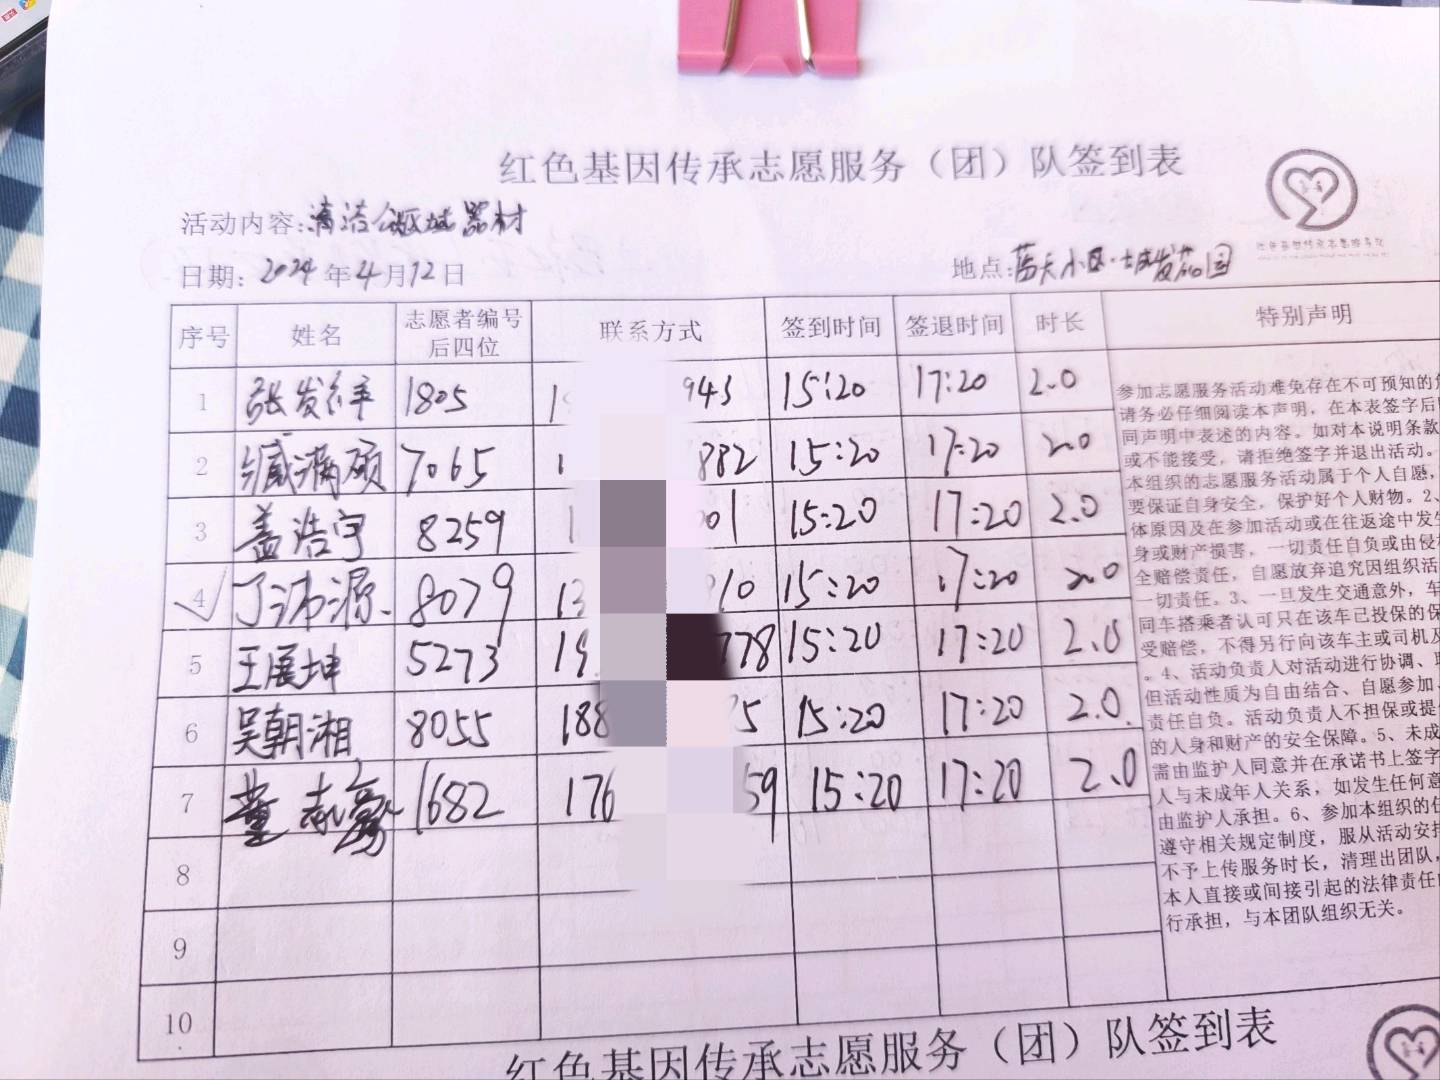 红色基因传承志愿服务（团）队签到表
活动内容:清洁健身器材
日期: 2024年4月12日
地点:蓝天小区·城发花园
序号 姓名 志愿者编号后四位 联系方式 签到时间 签退时间 时长 特别声明
1 张发祥 1805 1 943 15:20 17:20 2.0
2 臧满硕 7065 1 882 15:20 17:20 2.0
3 盖浩宇 8259 1 01 15:20 17:20 2.0
4 丁沛源 8079 13 910 15:20 17:20 2.0
5 王展坤 5273 19 778 15:20 17:20 2.0
6 吴朝湘 8055 188 5 15:20 17:20 2.0
7 董志豪 1682 176 59 15:20 17:20 2.0
8
9
10
参加志愿服务活动难免存在不可预知的
请务必仔细阅读本声明，在本表签字后
同声明中表述的内容。如对本说明条款
或不能接受，请拒绝签字并退出活动。
本组织的志愿服务活动属于个人自愿，
要保证自身安全，保护好个人财物。2、
体原因及在参加活动或在往返途中发生
身或财产损害，一切责任自负或由侵
全赔偿责任，自愿放弃追究因组织活
一切责任。3、一旦发生交通意外，车
同车搭乘者认可只在该车已投保的保
受赔偿，不得另行向该车主或司机及
。4、活动负责人对活动进行协调、
但活动性质为自由结合、自愿参加、
责任自负。活动负责人不担保或提
的人身和财产的安全保障。5、未成
需由监护人同意并在承诺书上签字
人与未成年人关系，如发生任何意
由监护人承担。6、参加本组织的
遵守相关规定制度，服从活动安排
不予上传服务时长，清理出团队，
本人直接或间接引起的法律责任
行承担，与本团队组织无关。
红色基因传承志愿服务（团）队签到表